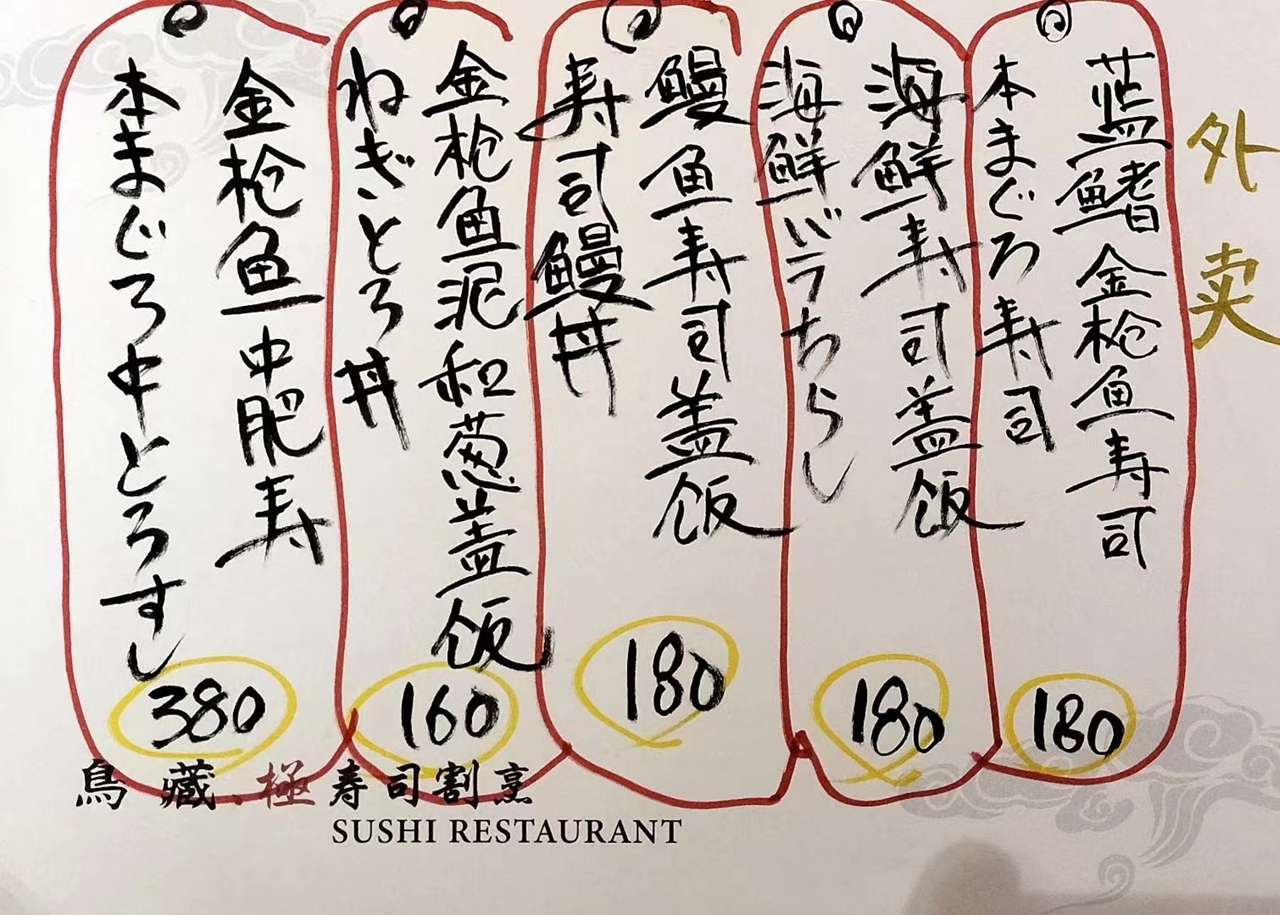 外卖
蓝鳍金枪鱼寿司
本まぐろ寿司
180
海鲜寿司盖饭
海鲜バラちらし
180
鳗鱼寿司盖饭
寿司鰻丼
180
金枪鱼泥和葱盖饭
ねぎとろ丼
160
金枪鱼中肥寿
本まぐろ中とろすし
380
鳥藏·極寿司割烹
SUSHI RESTAURANT